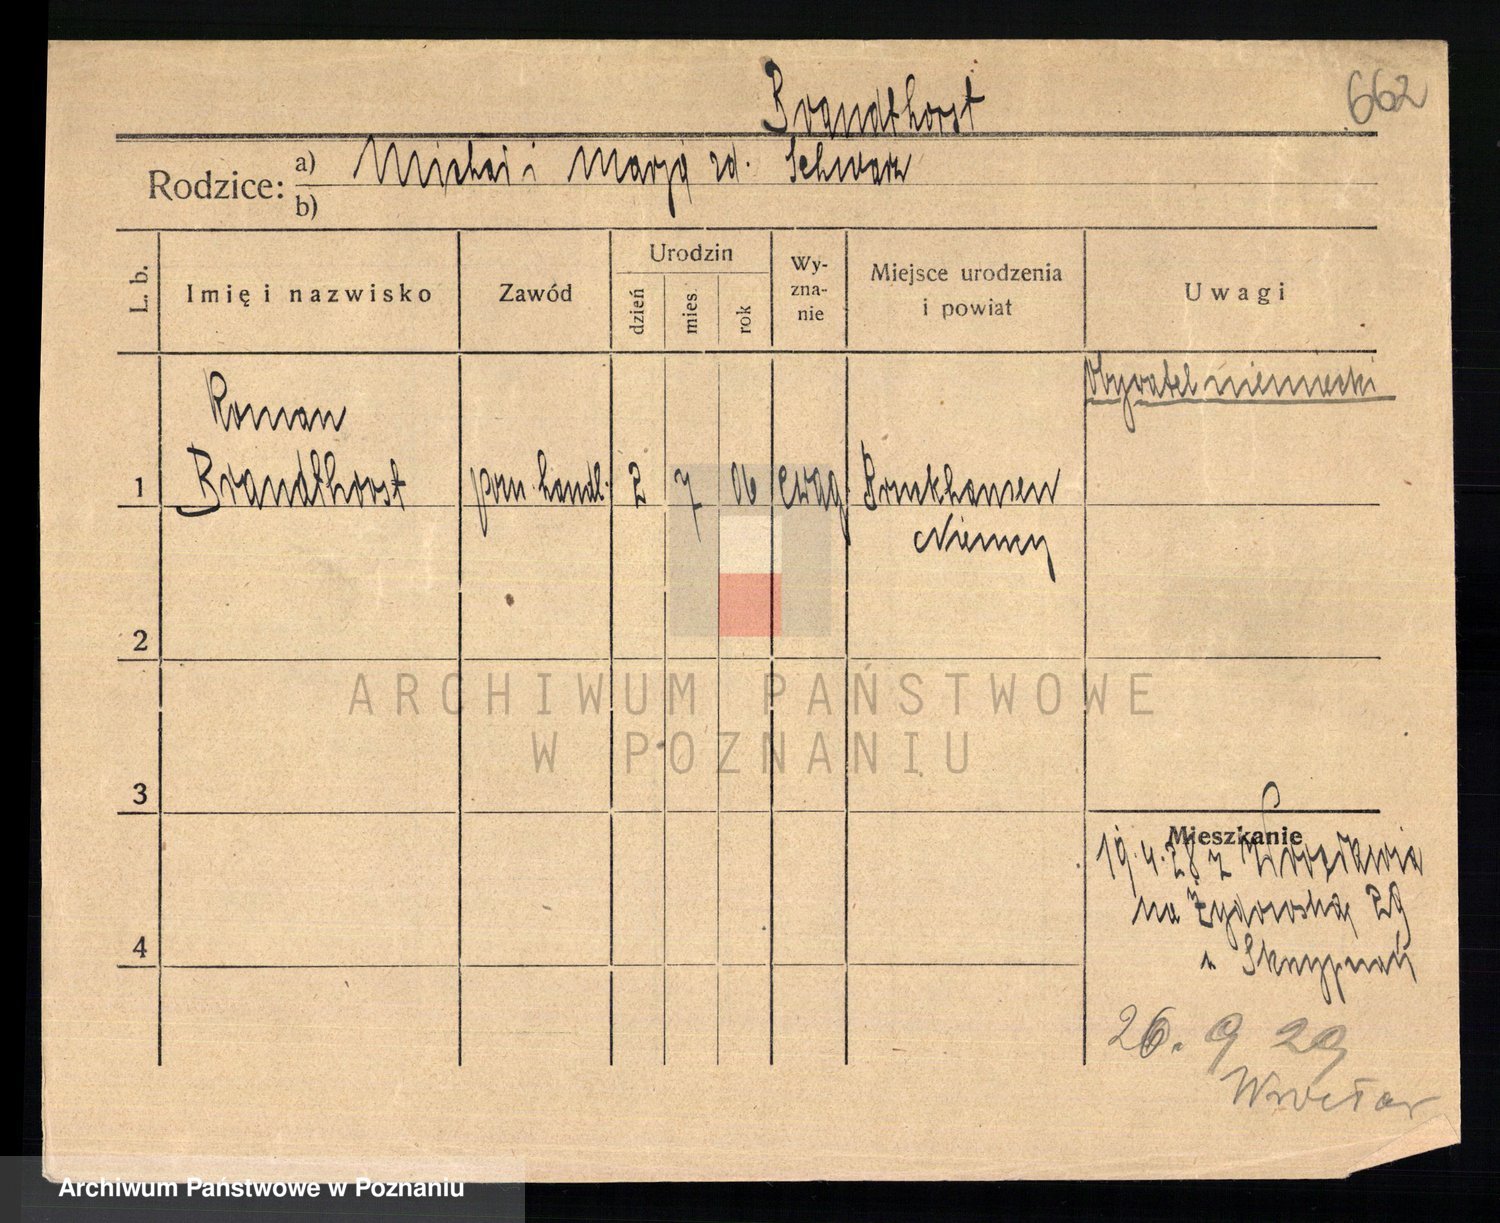 Brandthorst
662
Rodzice:
a) Michał i Marja rd. Schwarz
b)
L. b.
Imię i nazwisko
Zawód
Urodzin
dzień
mies.
rok
Wy-
zna-
nie
Miejsce urodzenia
i powiat
Uwagi
Obywatel niemiecki
Roman
1 Brandthorst pom. handl. 2 7 06 ewag.
Niemcy
2
3
4
Mieszkanie
19.4.28 z
na Żydowską 29
26. 9 29
Wrocław
ARCHIWUM PAŃSTWOWE
W POZNANIU
Archiwum Państwowe w Poznaniu